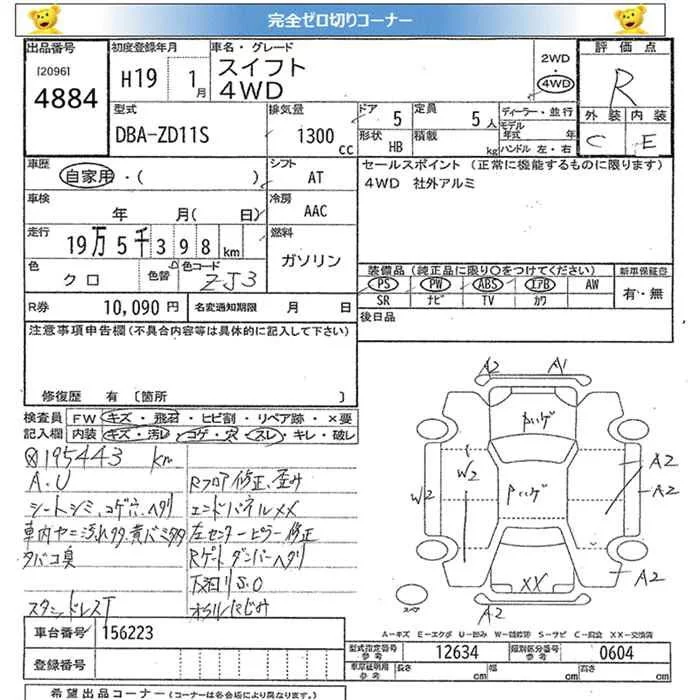 完全ゼロ切りコーナー
出品番号
[2096]
4884
初度登録年月
H19 1月
車名・グレード
スイフト
4WD
2WD
・
4WD
評価点
R
外装 内装
C E
型式
DBA-ZD11S
排気量
1300
cc
ドア 5
定員 5人
形状 HB
積載 kg
ディーラー・並行
モデル
年式 年
ハンドル 左・右
車歴
自家用・( )
シフト
AT
セールスポイント (正常に機能するものに限ります)
4WD 社外アルミ
車検
年 月( 日)
冷房
AAC
走行
19万5千398km
燃料
ガソリン
色
クロ
色替
色コード
ZJ3
装備品(純正品に限り○をつけてください)
PS PW ABS エアB AW
SR ナビ TV カワ
新車保証書
有・無
R券 10,090円
名変通知期限 月 日
後日品
注意事項申告欄(不具合内容等は具体的に記入して下さい)
修復歴 有 [箇所 ]
検査員
記入欄
FW キズ・飛石・ヒビ割・リペア跡・×要
内装 キズ・汚レ・コゲ・穴・スレ・キレ・破レ
195443 km
A.U
シートシミ、コゲ穴、ヘタリ
車内ヤニ汚れタタ、黄バミタタ
タバコ臭
スタッドレスT
Rフロア修正、歪み
エンドパネルXX
左センターピラー修正
Rゲートダンパーヘタリ
下回りS.O
オイルにじみ
A2 A1
W2
W2
A2
A2
XX
A2
A2
スペア
A-キズ E-エクボ U-凹み W-補修跡 S-サビ C-腐食 XX-交換済
車台番号 156223
登録番号
型式指定番号
参考
12634
類別区分番号
参考
0604
車庫証明用
参考
長さ cm
幅 cm
高さ cm
希望出品コーナー (コーナーは各会場により異なります。)